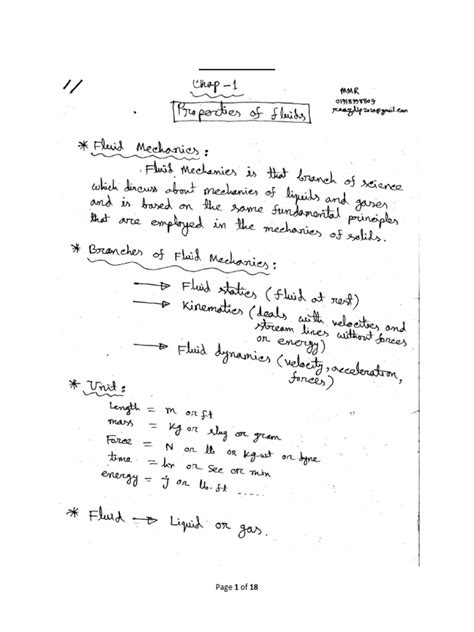 Chap-1
MMR
Properties of fluids
* Fluid Mechanics:
Fluid Mechanics is that branch of science
which discuss about mechanics of liquids and gases
and is based on the same fundamental principles
that are employed in the mechanics of solids.
* Branches of Fluid Mechanics:
→ Fluid statics (fluid at rest)
→ Kinematics (deals with velocities and
stream lines without forces
or energy)
→ Fluid dynamics (velocity, acceleration,
forces)
* Unit:
Length = m or ft
mass = kg or slug or gram
Force = N or lb or kg.wt or dyne
time = hr or sec or min
energy = j or lb.ft ....
* Fluid → Liquid or gas.
Page 1 of 18